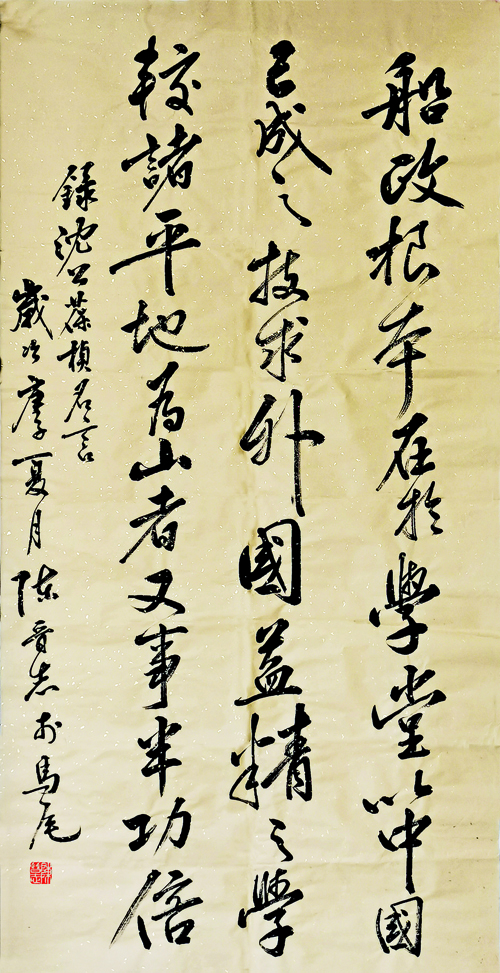 船政根本在於學堂以中國
已成之技求外國益精之學
較諸平地為山者又事半功倍
錄沈公葆楨名言
歲次庚子夏月陳晉志於馬尾